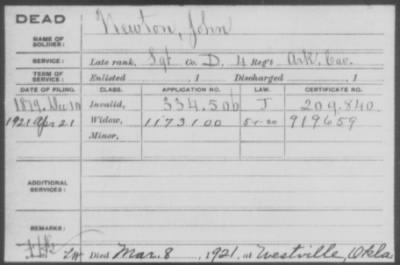 DEAD
NAME OF SOLDIER: Newton, John
SERVICE: Late rank, Sgt Co. D, 4 Reg't Ark. Cav.
TERM OF SERVICE: Enlisted , 1 Discharged , 1
DATE OF FILING. CLASS. APPLICATION NO. LAW. CERTIFICATE NO.
1879. Dec 10 Invalid, 334.506 J 209.840.
1921 Apr 21 Widow, 1173100 919659
Minor,
ADDITIONAL SERVICES:
REMARKS:
Died Mar. 8, 1921, at Westville, Okla